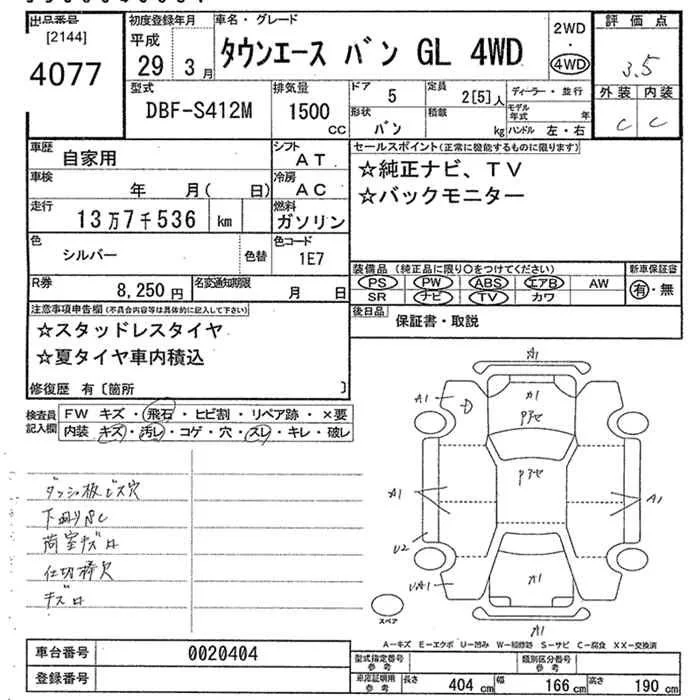 出品番号
[2144]
4077
初度登録年月
平成
29 3月
車名・グレード
タウンエース バン GL 4WD
2WD
・
4WD
評価点
3.5
外装 内装
C C
型式
DBF-S412M
排気量
1500
cc
ドア
5
定員
2[5]人
形状
バン
積載
kg
ディーラー・並行
モデル年式 年
ハンドル 左・右
車歴
自家用
シフト
AT
車検
年 月( 日)
冷房
AC
走行
13万7千536 km
燃料
ガソリン
色
シルバー
色替
色コード
1E7
R券
8,250円
名変通知期限
月 日
セールスポイント(正常に機能するものに限ります)
☆純正ナビ、TV
☆バックモニター
装備品(純正品に限り○をつけてください)
PS PW ABS エアB AW
SR ナビ TV カワ
新車保証書
有・無
後日品
保証書・取説
注意事項申告欄(不具合内容等は具体的に記入して下さい)
☆スタッドレスタイヤ
☆夏タイヤ車内積込
修復歴 有〔箇所 〕
検査員記入欄
FW キズ・飛石・ヒビ割・リペア跡・×要
内装 キズ・汚レ・コゲ・穴・スレ・キレ・破レ
ダッシュ板ビス穴
荷室キズ
キズ
A1
A1
A1
A1
U2
A1
スペア
A-キズ E-エクボ U-凹み W-補修跡 S-サビ C-腐食 XX-交換済
車台番号
0020404
登録番号
型式指定番号
参考
類別区分番号
参考
車庫証明用
参考
長さ 404 cm 幅 166 cm 高さ 190 cm